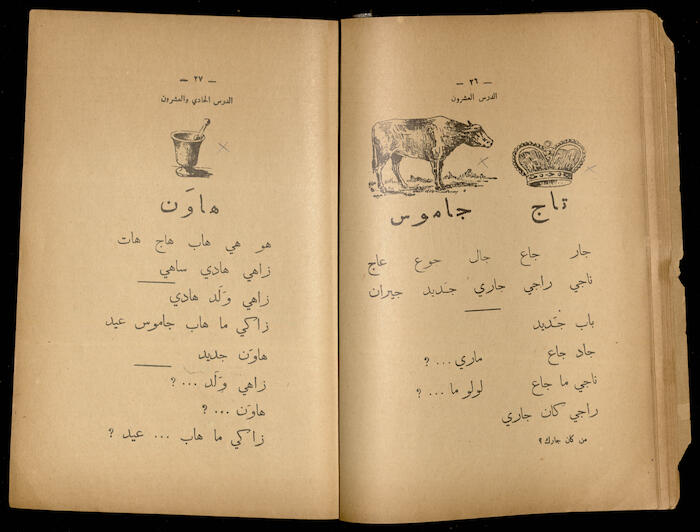 — ٢٦ —
الدرس العشرون
تاج جاموس
جار جاع جال جوع عاج
ناجي راجي جاري جَديد جيران
باب جَديد
جاد جاع ماري ... ؟
ناجي ما جاع لولو ما ... ؟
راجي كان جاري
من كان جارك ؟
— ٢٧ —
الدرس الحادي والعشرون
هاوَن
هو هي هاب هاج هات
زاهي هادي ساهي
زاهي وَلَد هادي
زاكي ما هاب جاموس عيد
هاوَن جديد
زاهي وَلَد ... ؟
هاوَن ... ؟
زاكي ما هاب ... عيد ؟